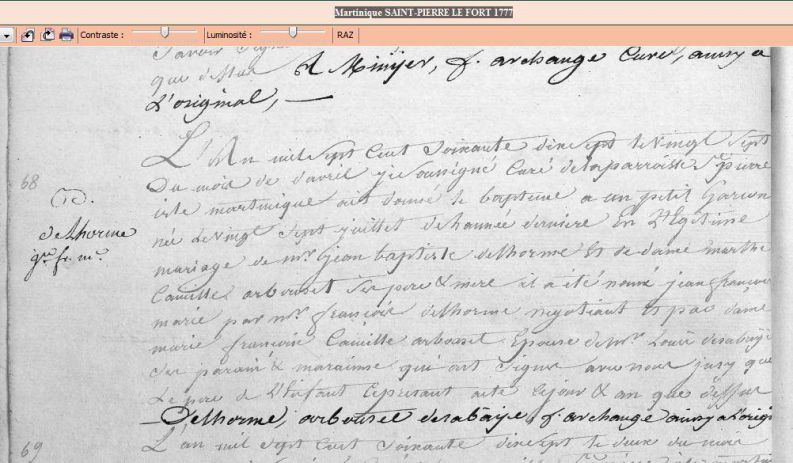 Martinique SAINT-PIERRE LE FORT 1777
Contraste : Luminosité : RAZ
que dessus A Minijer, f. archange Curé, ainsy a
L'original, —
68
L'An mil Sept Cent Soixante dixsept le vingt Sept
Du mois de d'avril je soussigné Curé dela parroisse S. Pierre
isle martinique ait donné le baptême a un petit Garcon
née le vingt Sept juillet de L'année derniere En Légitime
mariage de mr. jean baptiste delhorme Et de dame marthe
Camille arbousset Ses pere & mere il a été nomé jean françois
marie par mr. françois delhorme negotiant Et par dame
marie françoise Camille arbousset Epouse de Mr. Louis desabaÿe
Ses parain & marainne qui ont Signé avec nous
Le pere de L'Enfant Lepresant acte Lejour & an que dessus
Delhorme, arbousset desabaÿe, f. archange ainsy a L'orig
delhorme
69
L'an mil Sept Cent Soixante dixsept le deux du mois